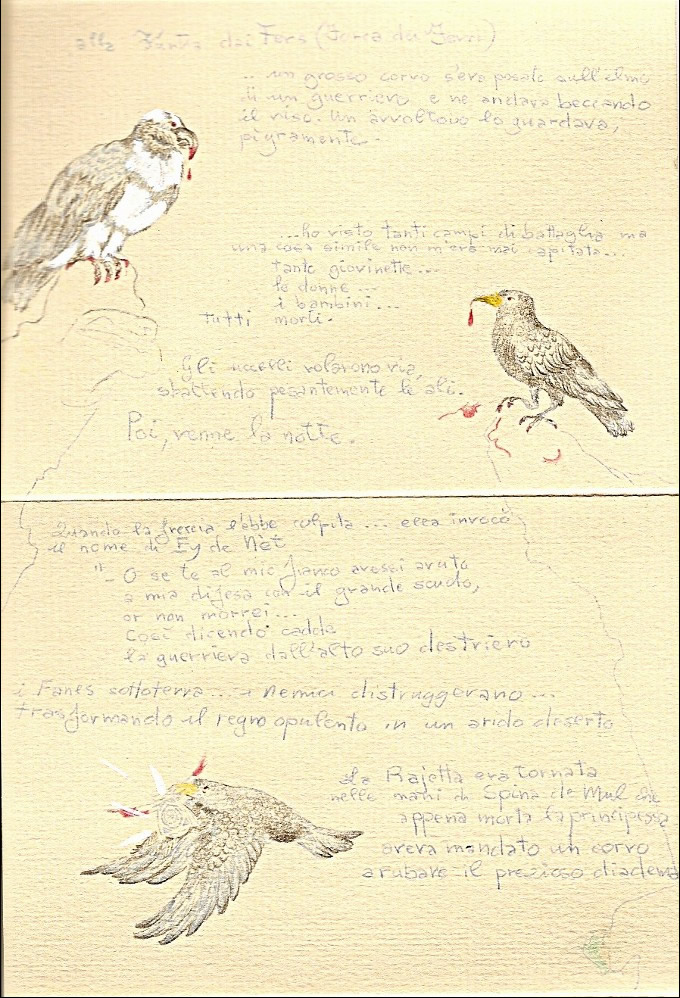 alla Furcia dai Fers (Forca dei Ferri)
.. un grosso corvo s'era posato sull'elmo
di un guerriero e ne andava beccando
il viso. Un avvoltoio lo guardava,
pigramente.
...ho visto tanti campi di battaglia ma
una cosa simile non m'era mai capitata...
tante giovinette...
le donne...
i bambini...
tutti morti.
Gli uccelli volarono via,
sbattendo pesantemente le ali.
Poi, venne la notte.
Quando la freccia l'ebbe colpita ... essa invocò
il nome di Ey de Nèt
"- O se te al mio fianco avessi avuto
a mia difesa con il grande scudo,
or non morrei...
Così dicendo cadde
la guerriera dall'alto suo destriero
i Fanes sottoterra... i nemici distruggerano...
trasformando il regno opulento in un arido deserto
La Rajetta era tornata
nelle mani di Spina de Mul che
appena morta la principessa
aveva mandato un corvo
a rubare il prezioso diadema